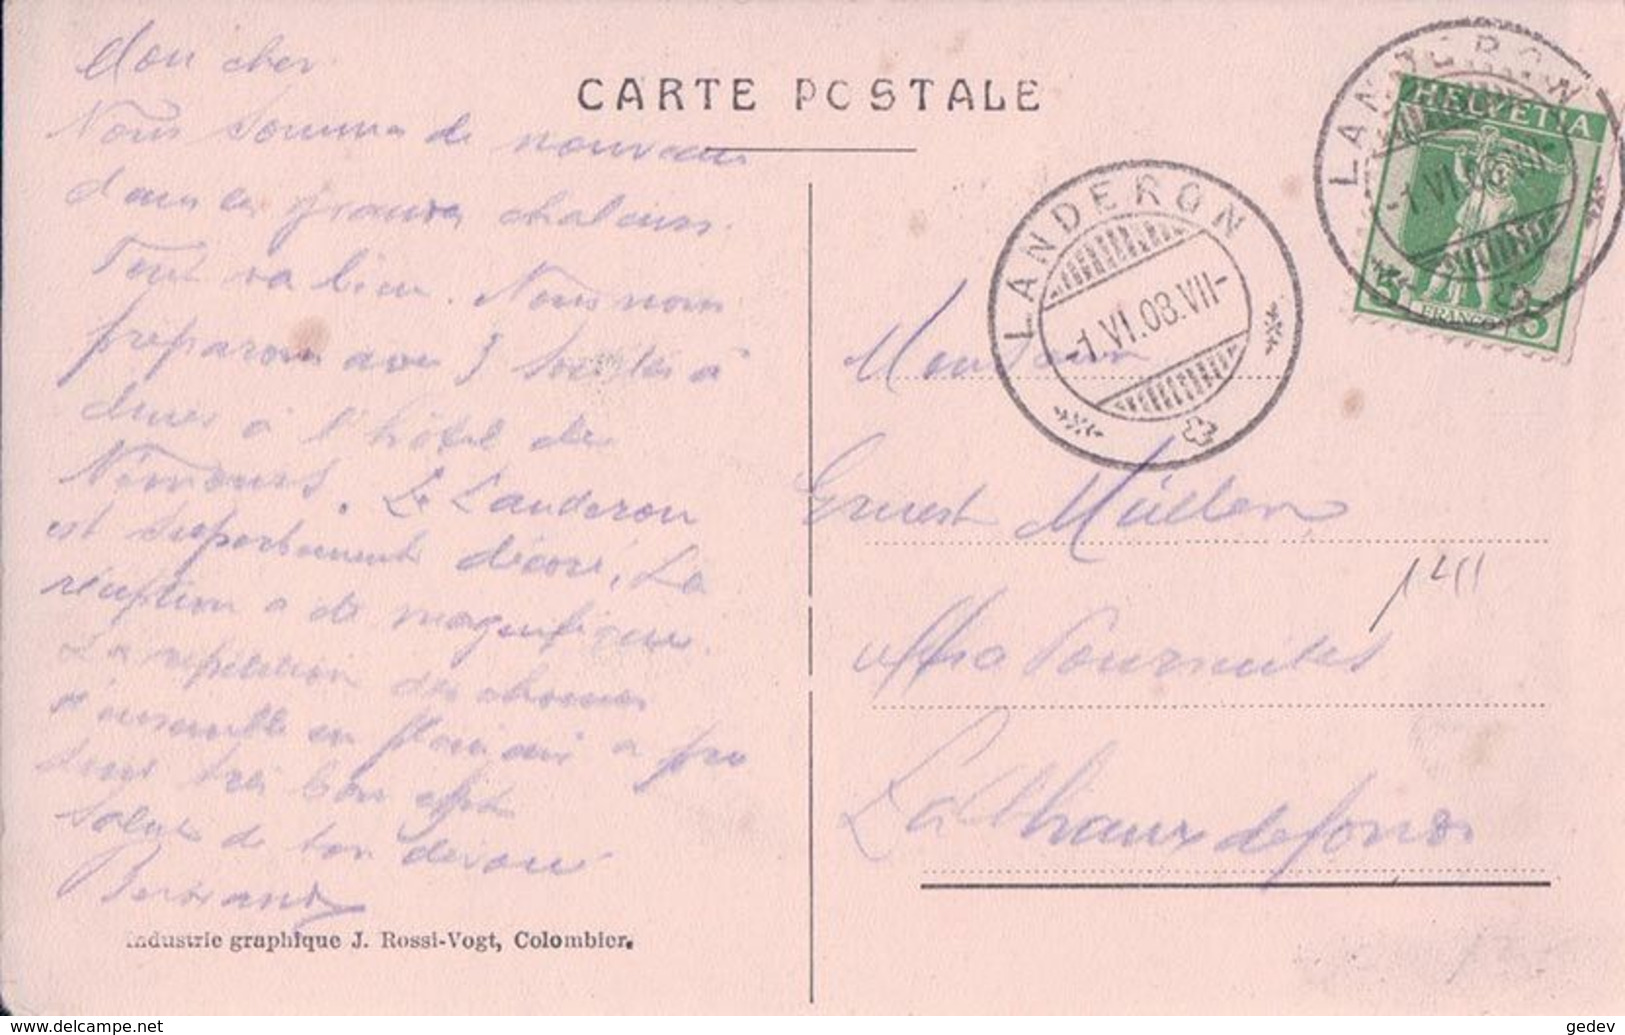 Mon cher
CARTE POSTALE
Nous sommes de nouveau
dans les grandes chaleurs.
Tout va bien. Nous nous
préparons avec 3 sociétés à
diner à l'hôtel de
Némours. Le Landeron
est superbement décoré. La
réception a été magnifique.
La répétition des choeurs
d'ensemble en plein air a pro
duit très bon effet
Salut de ton dévoué
Bertrand
Industrie graphique J. Rossi-Vogt, Colombier.
LANDERON
-1.VI.08.VII-
LANDERON
-1.VI.08.VIII-
HELVETIA
5 FRANCO 5
Monsieur
Ernest Müller
Fournitures
La Chaux de fonds
www.delcampe.net
gedev